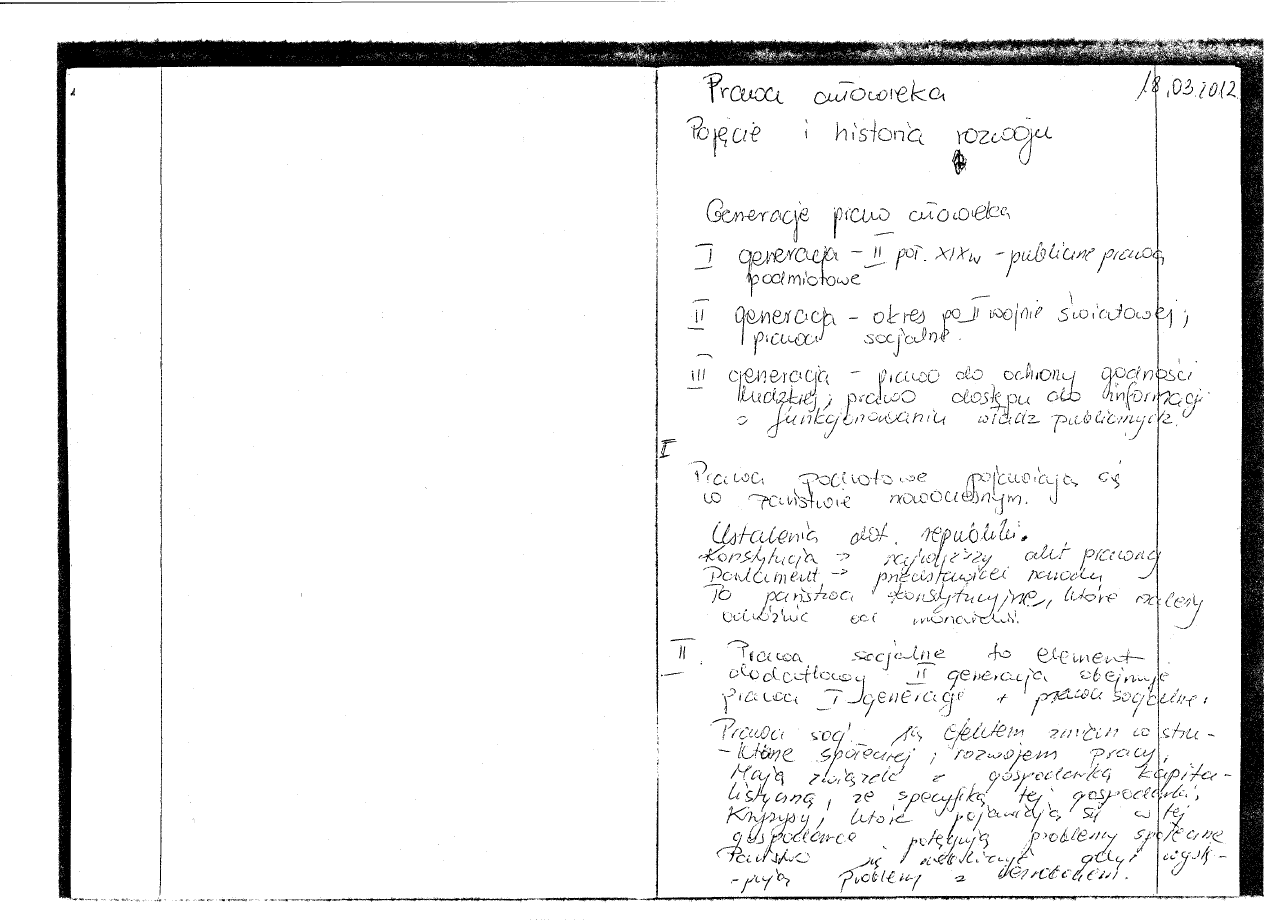 Prawa człowieka
18.03.2012
Pojęcie i historia rozwoju
Generacje praw człowieka
I generacja – II poł. XIX w – publiczne prawa
podmiotowe
II generacja – okres po II wojnie światowej;
prawa socjalne.
III generacja – prawo do ochrony godności
ludzkiej; prawo dostępu do informacji
o funkcjonowaniu władz publicznych.
I
Prawa podmiotowe pojawiają się
w państwie nowoczesnym.
Ustalenia dot. republiki.
Konstytucja → najwyższy akt prawny
Parlament → przedstawiciel narodu
To państwa konstytucyjne, które należy
odróżnić od monarchii.
II. Prawa socjalne to element
dodatkowy II generacja obejmuje
prawa I generacji + prawa socjalne.
Prawa socj. są efektem zmian w stru-
-kturze społecznej i rozwojem pracy.
Mają związek z gospodarką kapita-
listyczną, ze specyfiką tej gospodarki.
Kryzysy, które pojawiają się w tej
gospodarce potęgują problemy społeczne
Państwo się gdyż wystę-
-pują problemy z bezrobociem.